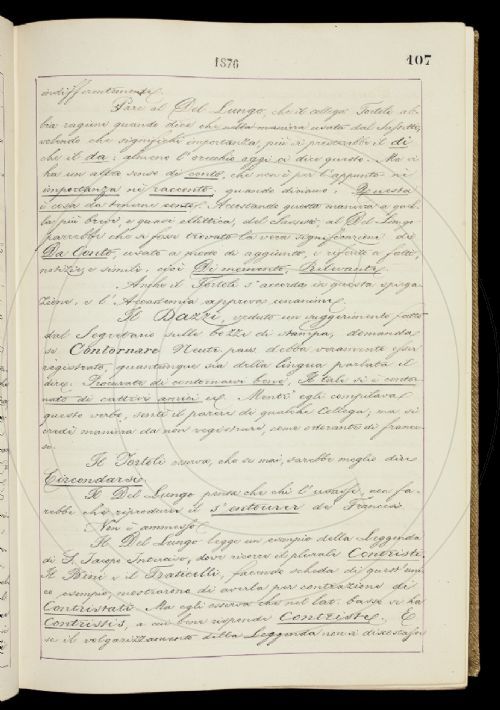 1876
107
indifferentemente.
Pare al Del Lungo, che il collega Tortoli ab-
bia ragione quando dice che nella maniera usata dal Sassetti,
volendo che significhi importanza, più si presterebbe il di
che il da; almeno l'orecchio oggi ci dice questo. Ma vi
ha un altro senso di conto, che non è per l'appunto nè
importanza nè racconto, quando diciamo: Questa
è cosa da tenerne conto. Accostando questa maniera a quel-
la più breve, e quasi ellittica, del Sassetti, al Del Lungo
parrebbe che si fosse trovato la vera significazione di
Da Conto, usato a modo di aggiunto, e riferito a fatti,
notizie e simili, cioè Di momento, Rilevante.
Anche il Tortoli s'accorda in questa spiega-
zione, e l'Accademia approva unanime.
Il Dazzi, veduto un suggerimento fatto
dal Segretario sulle bozze di stampa, domanda
se Contornare Neutr. pass. debba veramente esser
registrato, quantunque sia della lingua parlata il
dire: Procurate di contornarvi bene, Il tale si è contor-
nato di cattivi amici ec. Mentr' egli compilava
questo verbo, sentì il parere di qualche Collega, ma si
credè maniera da non registrare, come odorante di france-
se.
Il Tortoli osserva, che se mai, sarebbe meglio dire
Circondarsi.
Il Del Lungo pensa che chi l'usasse, non fa-
rebbe che riprodurre il s'entourer dei Francesi.
Non è ammesso.
Il Del Lungo legge un esempio della Leggenda
di S. Jacopo Interciso, dove ricorre il plurale Contriste.
Il Brini e il Fraticelli, facendo scheda di quest' uni-
co esempio, mostrarono di averla per contrazione di
Contristate. Ma egli osserva che nel lat. basso vi ha
Contristis, a cui bene risponde Contriste. E
se il volgarizzamento della Leggenda non è discosto